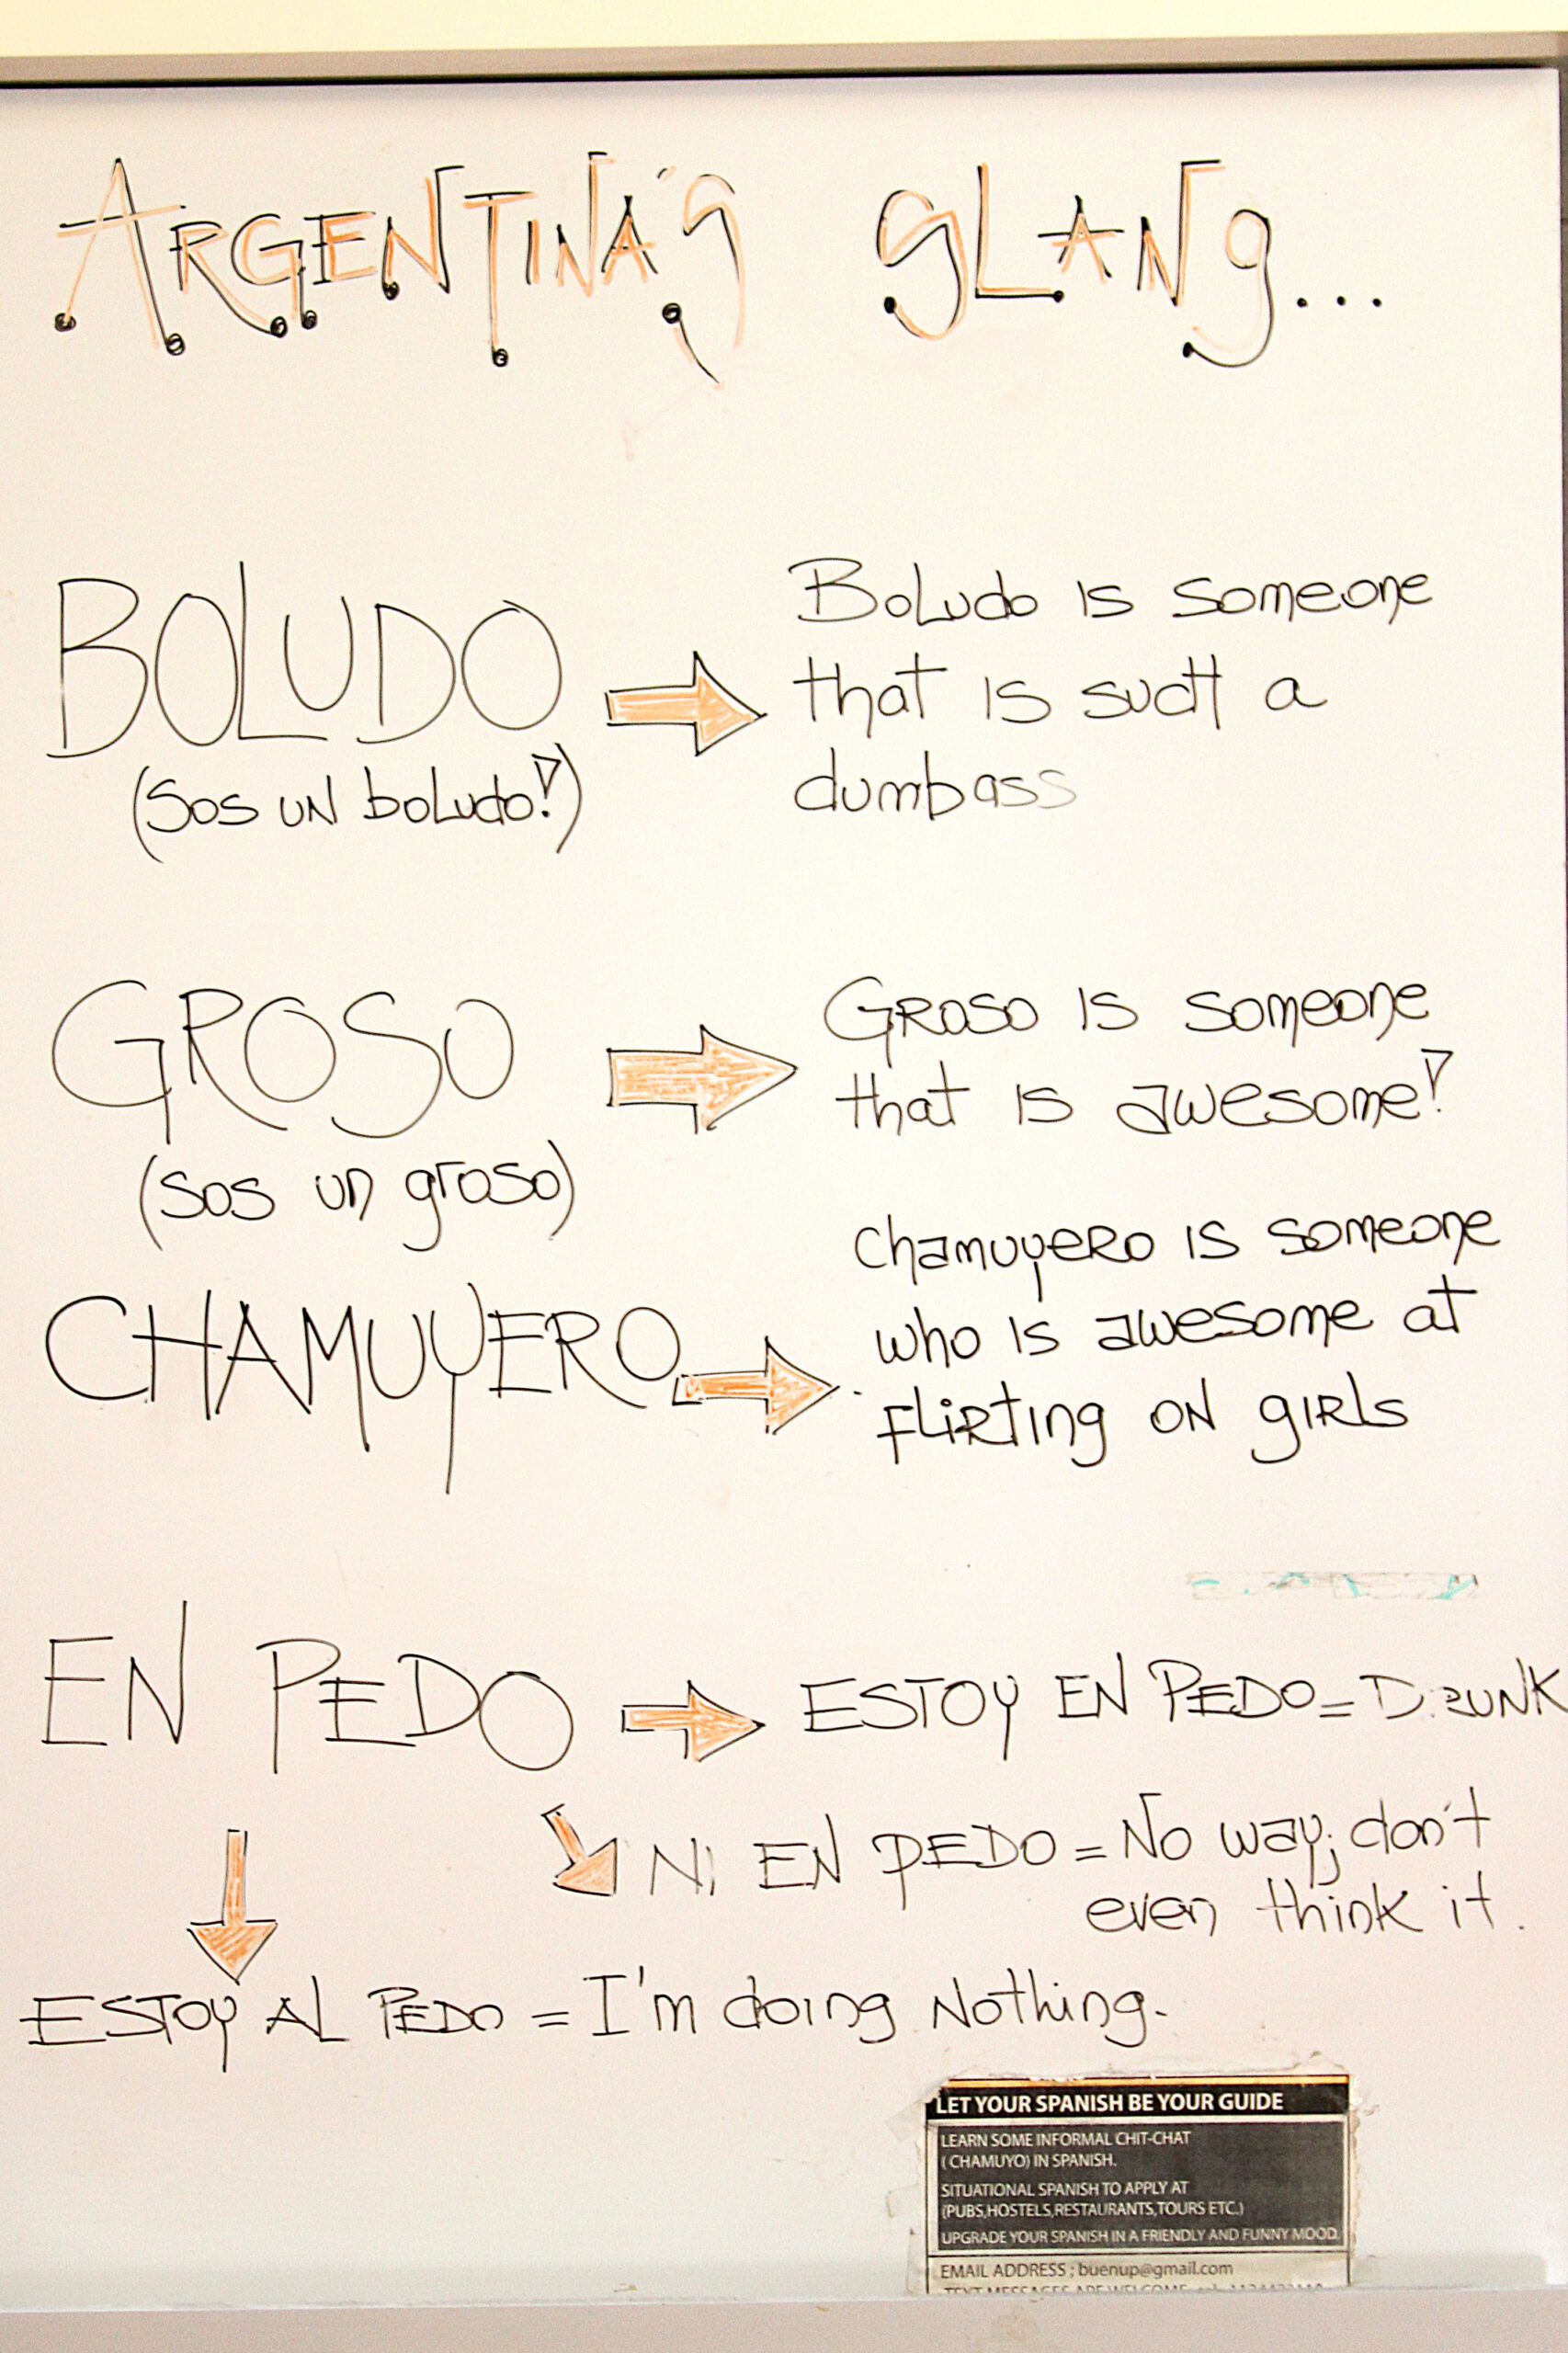 ARGENTINA'S SLANG...
BOLUDO
(Sos un boludo!)
Boludo is someone
that is such a
dumbass
GROSO
(sos un groso)
Groso is someone
that is awesome!
CHAMUYERO
chamuyero is someone
who is awesome at
flirting on girls
EN PEDO
ESTOY EN PEDO = DRUNK
NI EN PEDO = No way; don't
even think it.
ESTOY AL PEDO = I'm doing nothing.
LET YOUR SPANISH BE YOUR GUIDE
LEARN SOME INFORMAL CHIT-CHAT
( CHAMUYO) IN SPANISH.
SITUATIONAL SPANISH TO APPLY AT
(PUBS,HOSTELS,RESTAURANTS,TOURS ETC.)
UPGRADE YOUR SPANISH IN A FRIENDLY AND FUNNY MOOD.
EMAIL ADDRESS ; buenup@gmail.com
TEXT MESSAGES ARE WELCOME